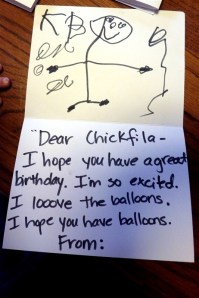 K B
"Dear Chickfila -
I hope you have a great
birthday. I'm so excited.
I looove the balloons.
I hope you have balloons.
From: